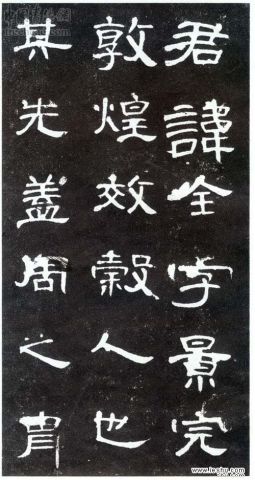 君諱全字景完
敦煌效穀人也
其先蓋周之胄
www.ieshu.com